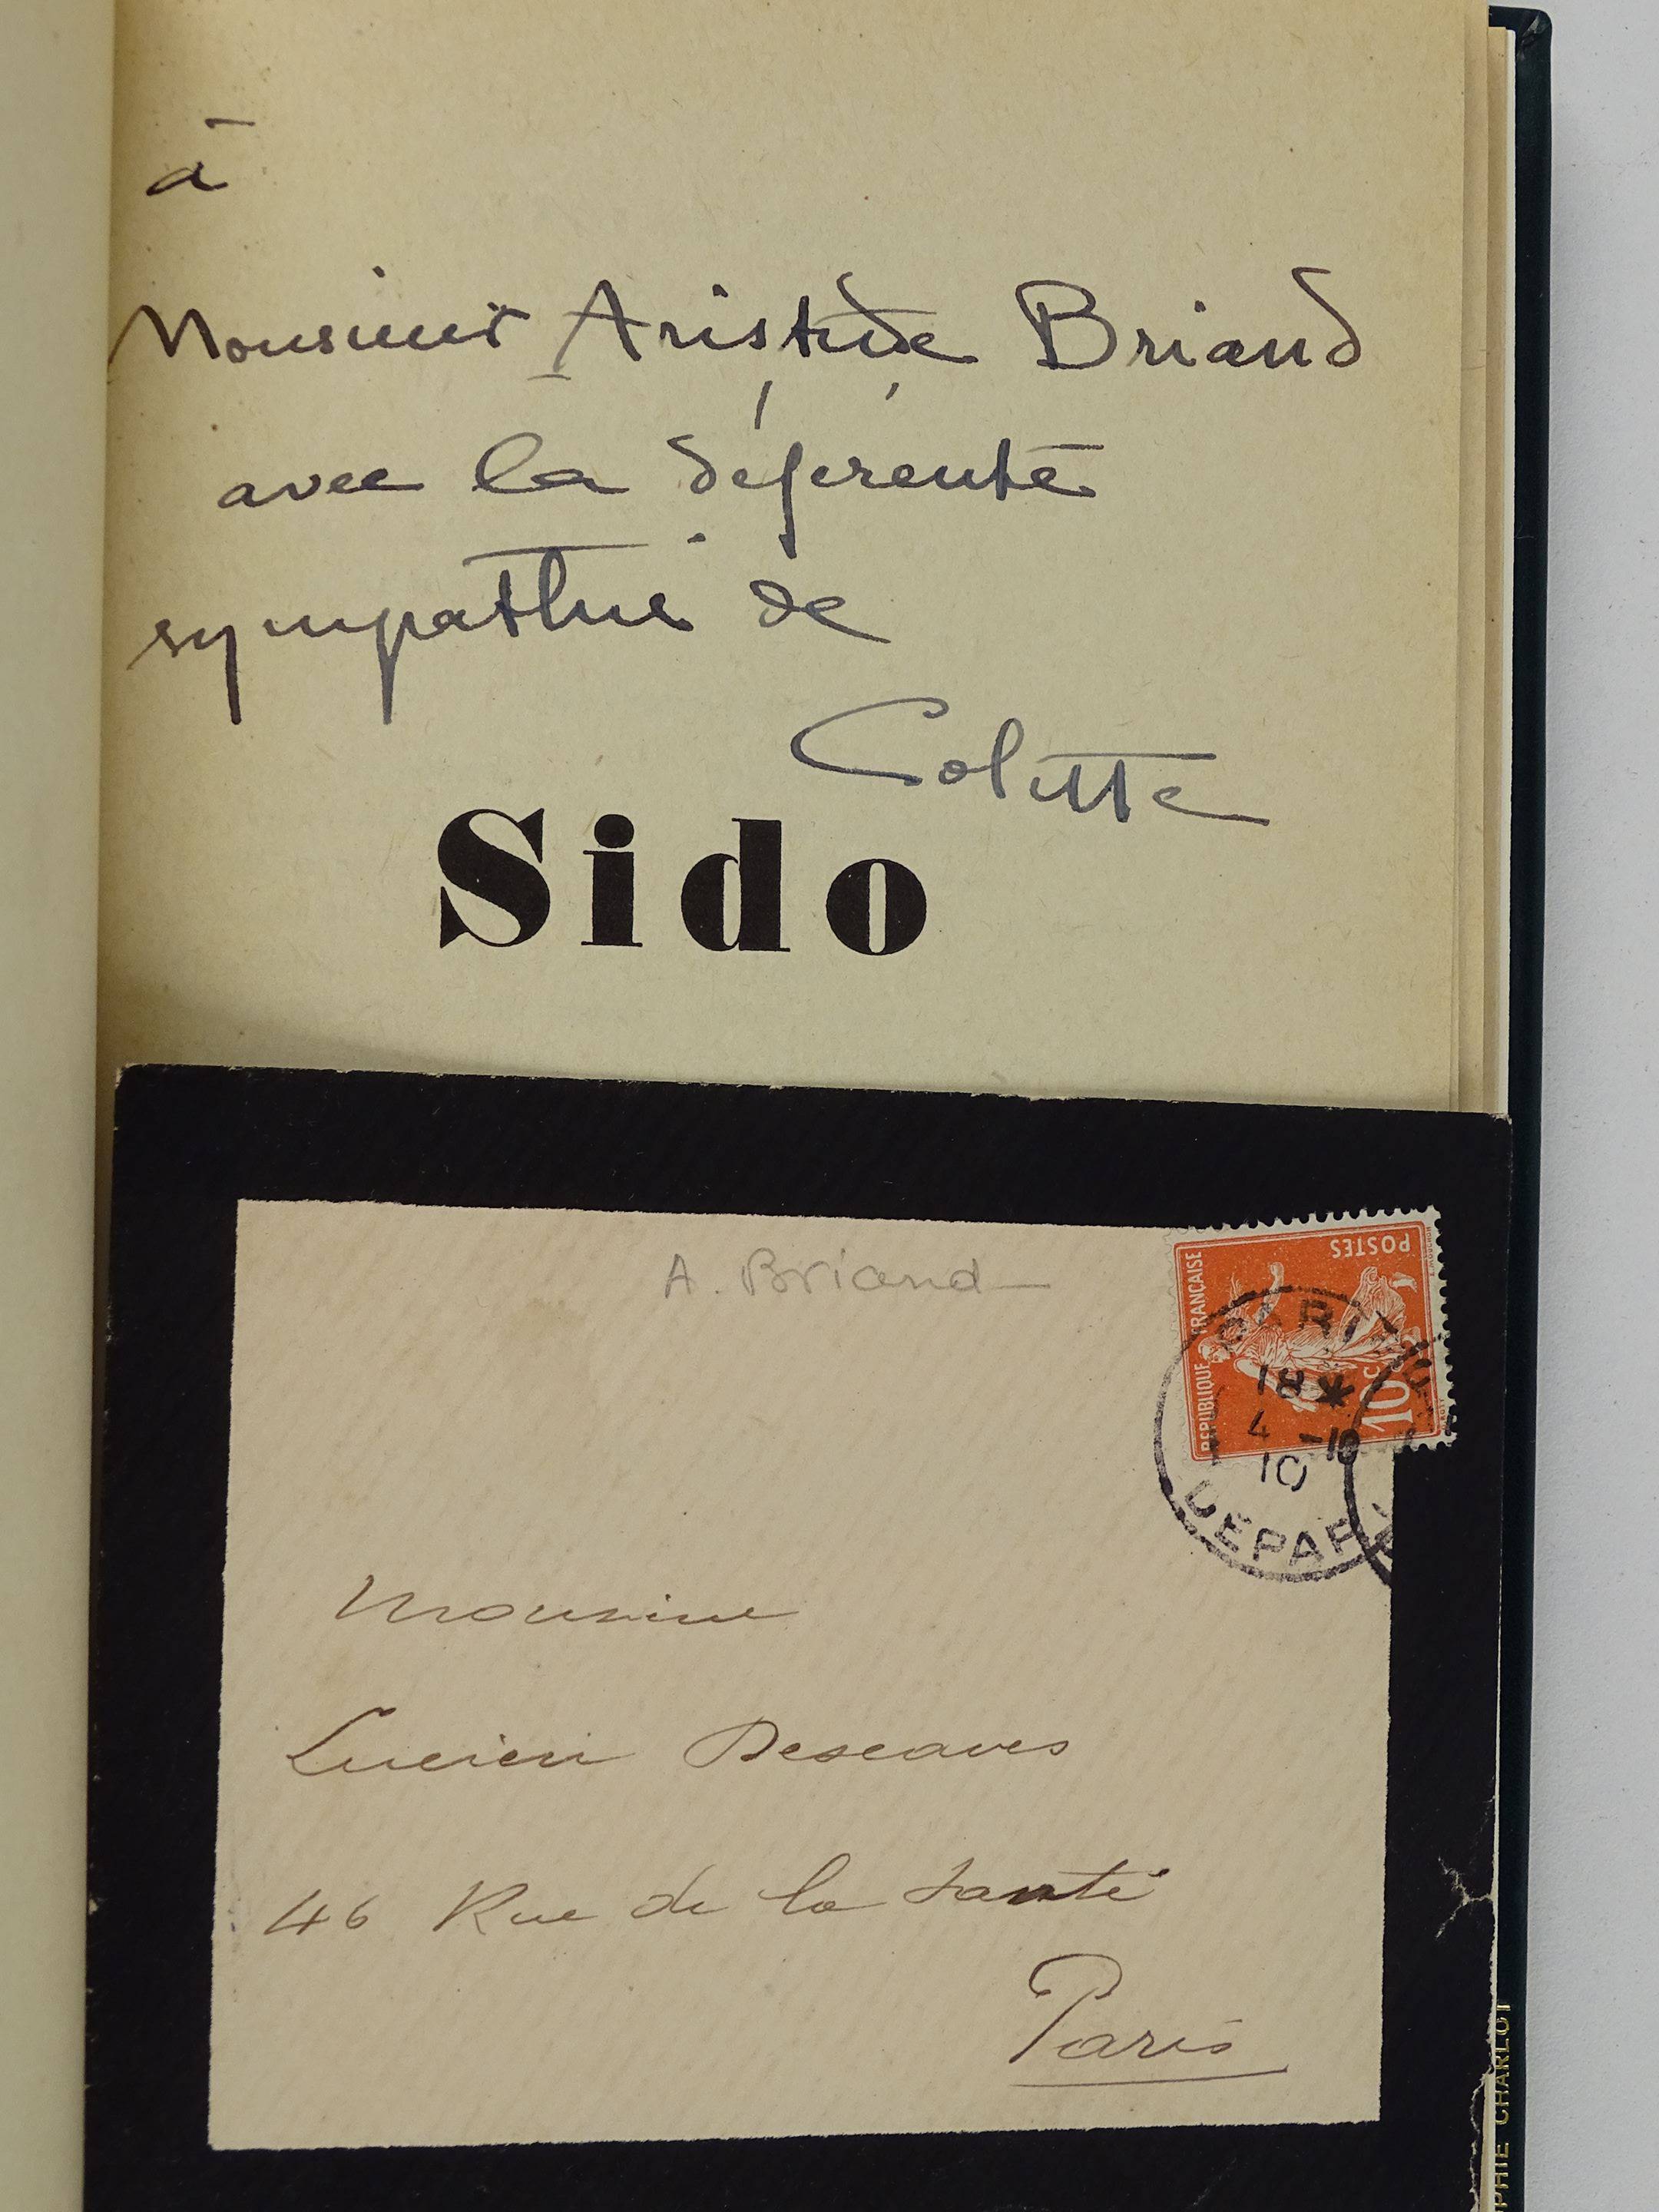 à
Monsieur Aristide Briand
avec la déférente
sympathie de
Colette
Sido
A. Briand
POSTES
REPUBLIQUE FRANÇAISE
10c
18*
4 -10
10
DEPART
Monsieur
Lucien Descaves
46 Rue de la Santé
Paris
PHIE CHARLOT